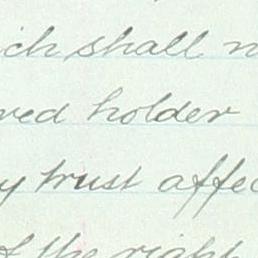 ich shall n
ved holder
y trust affec
f the right